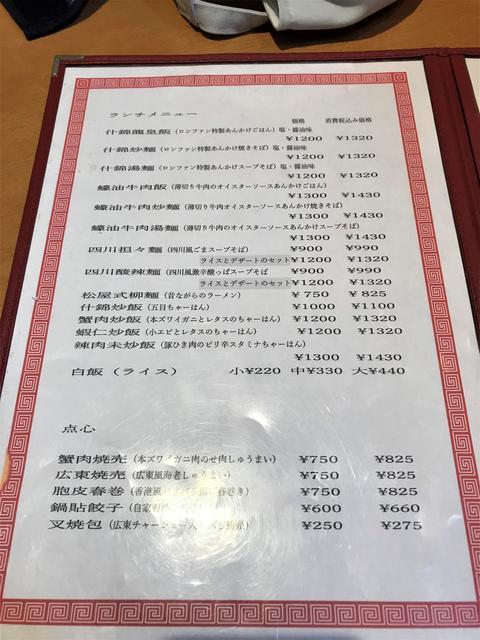 ランチメニュー
価格 消費税込み価格
什錦龍皇飯（ロンファン特製あんかけごはん）塩・醤油味
¥1200 ¥1320
什錦炒麺（ロンファン特製あんかけ焼きそば）塩・醤油味
¥1200 ¥1320
什錦湯麺（ロンファン特製あんかけスープそば）塩・醤油味
¥1200 ¥1320
蠔油牛肉飯（薄切り牛肉のオイスターソースあんかけごはん）
¥1300 ¥1430
蠔油牛肉炒麺（薄切り牛肉のオイスターソースあんかけ焼きそば）
¥1300 ¥1430
蠔油牛肉湯麺（薄切り牛肉のオイスターソースあんかけスープそば）
¥1300 ¥1430
四川担々麺（四川風ごまスープそば） ¥900 ¥990
ライスとデザートのセット ¥1200 ¥1320
四川酸辣麺（四川風激辛酸っぱスープそば ¥900 ¥990
ライスとデザートのセット ¥1200 ¥1320
松屋式柳麺（昔ながらのラーメン） ¥750 ¥825
什錦炒飯（五目ちゃーはん） ¥1000 ¥1100
蟹肉炒飯（本ズワイガニとレタスのちゃーはん） ¥1200 ¥1320
蝦仁炒飯（小エビとレタスのちゃーはん） ¥1200 ¥1320
辣肉末炒飯（豚ひき肉のピリ辛スタミナちゃーはん）
¥1300 ¥1430
白飯（ライス） 小¥220 中¥330 大¥440
点心
蟹肉焼売（本ズワイガニ肉のせ肉しゅうまい） ¥750 ¥825
広東焼売（広東風海老しゅうまい） ¥750 ¥825
胞皮春巻（香港風 春巻き） ¥750 ¥825
鍋貼餃子（自家製 ¥600 ¥660
叉焼包（広東チャーシュー ¥250 ¥275